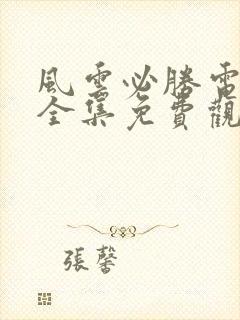 風雲必勝電
全集免費觀
張馨